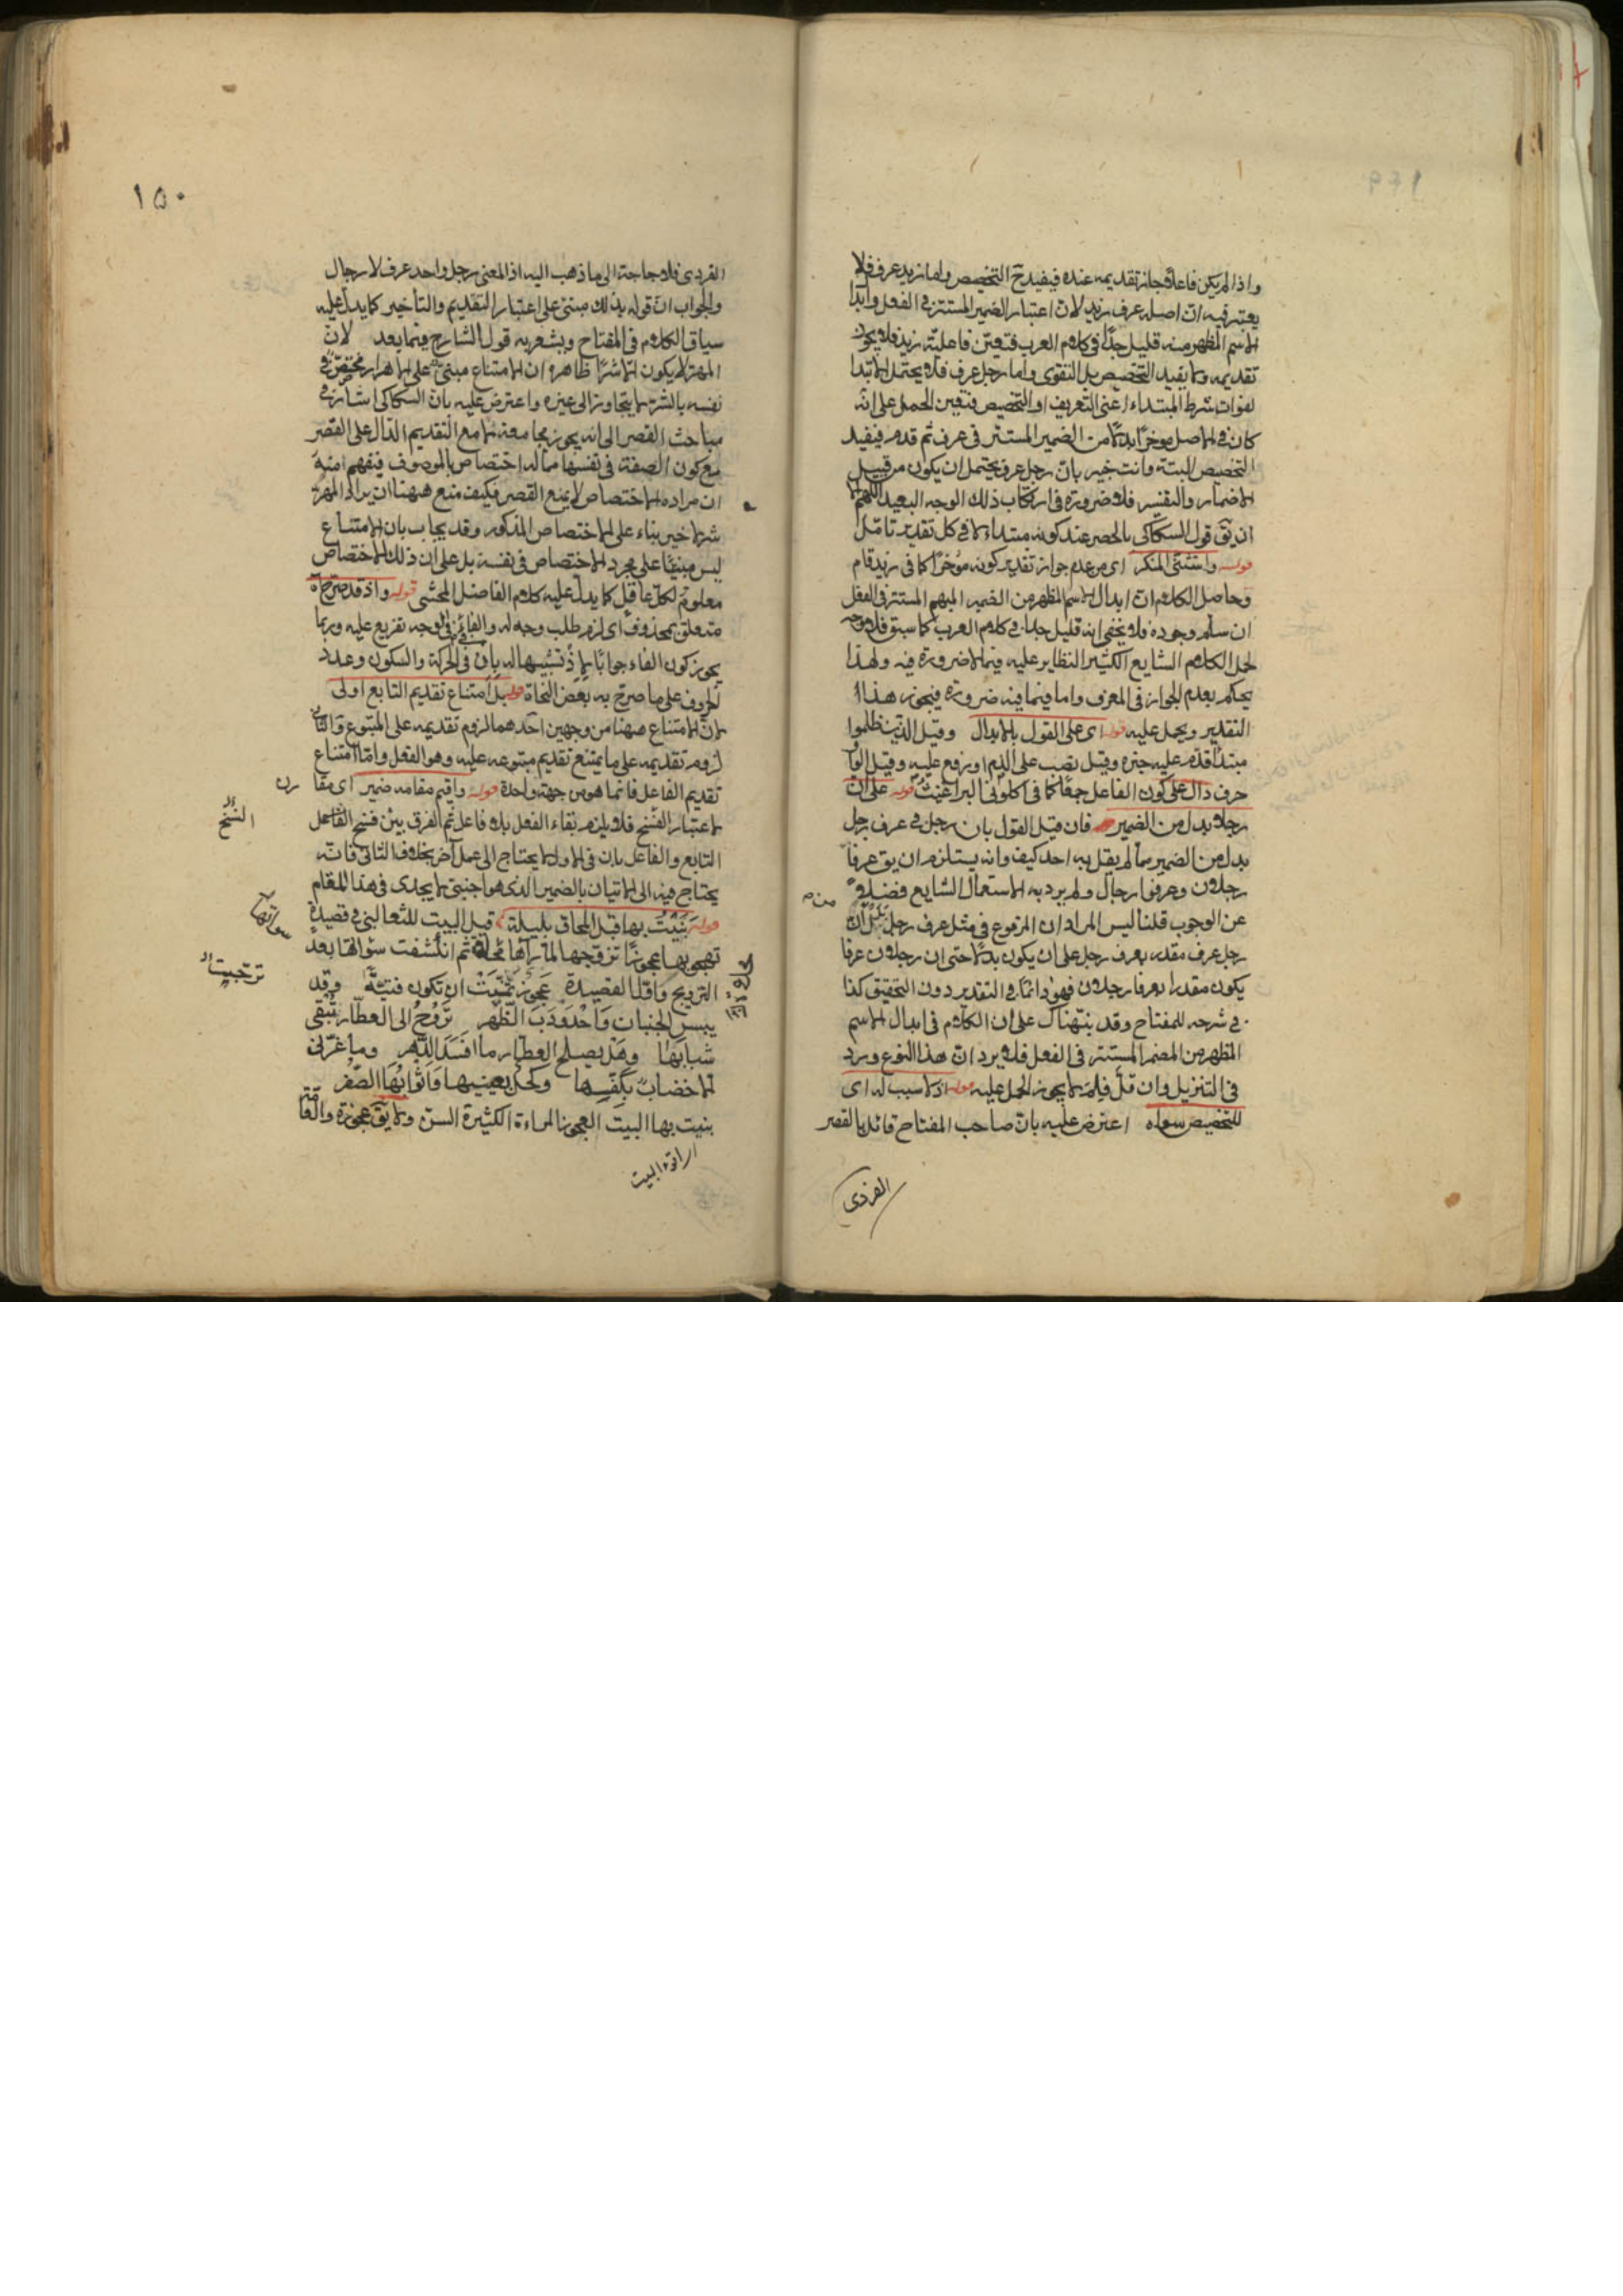 واذا لم يكن فاعلا جاز تقديمه عنده فيفيد ح التخصيص واما زيد عرف فلا
يعتبر فيه ان اصله عرف زيد لان اعتبار الضمير المستتر في الفعل وابدا
الاسم المظهر منه قليل جدا في كلام العرب فتعين فاعلية زيد فلا يجوز
تقديمه ولا يفيد التخصيص بل التقوى واما رجل عرف فلا يحتمل الابتدا
لفوات شرط المبتداء اعنى التعريف او التخصيص فتعين الحمل على انه
كان في الاصل موخرا بدلا من الضمير المستتر في عرف ثم قدم فيفيد
التخصيص البتة وانت خبير بان رجل عرف يحتمل ان يكون من قبيل
الاضمار والتفسير فلا ضرورة في ارتكاب ذلك الوجه البعيد اللهم الا
ان يق قول السكاكى بالحصر عند كونه مبتداء لا في كل تقدير تامل
قوله واستثنى المنكر اى من عدم جواز تقدير كونه مؤخرا كما في زيد قام
وحاصل الكلام ان ابدال الاسم المظهر من الضمير المبهم المستتر في الفعل
ان سلم وجوده فلا يخفى انه قليل جدا في كلام العرب كما سبق فلا وجه
لحمل الكلام الشايع الكثير النظاير عليه فيما لا ضرورة فيه ولهذا
يحكم بعدم الجواز في المعرف واما فيما فيه ضرورة فيجوز هذا
التقدير ويحمل عليه قوله اى على القول بالابدال وقيل الذين ظلموا
مبتدأ قدم عليه خبره وقيل نصب على الذم او رفع عليه وقيل الوا
حرف دال على كون الفاعل جمعا كما في اكلونى البراغيث قوله على ان
رجلا بدل من الضمير فان قيل القول بان رجل في عرف رجل
بدل من الضمير مما لم يقل به احد كيف وانه يستلزم ان يق عرفا
رجلان وعرفوا رجال ولم يرد به الاستعمال الشايع فضلا
عن الوجوب قلنا ليس المراد ان المرفوع في مثل عرف رجل بدل ان
رجل عرف مقدر بعرف رجل على ان يكون بدلا حتى ان رجلان عرفا
يكون مقدرا بعرفا رجلان فهو دائما في التقدير دون التحقيق كذا
في شرحه للمفتاح وقد نبهناك على ان الكلام في ابدال الاسم
المظهر من المضمر المستتر في الفعل فلا يرد ان هذا النوع ورد
في التنزيل وان قل فلم لا يجوز الحمل عليه قوله اذ لا سبب له اى
للتخصيص سواه اعترض عليه بان صاحب المفتاح قائل بالقصر
الفردى
١٥٠
الفردى فلا حاجة الى ما ذهب اليه اذ المعنى رجل واحد عرف لا رجال
والجواب ان قوله بذلك مبنى على اعتبار التقديم والتأخير كما يدل عليه
سياق الكلام في المفتاح ويشعر به قول الشارح فيما بعد لان
المهر لا يكون الا شرا ظاهره ان الامتناع مبنى على ان الاهرار مختص في
نفسه بالشر لا يتجاوز الى غيره واعترض عليه بان السكاكى اشار في
مباحث القصر الى انه يجوز مجامعة لا مع التقديم الدال على القصر
مع كون الصفة في نفسها مما له اختصاص بالموصوف فيفهم منه
ان مراده الاختصاص لا يمنع القصر فكيف منع ههنا ان يراد المهر
شر لا خير بناء على الاختصاص المذكور وقد يجاب بان الامتناع
ليس مبنيا على مجرد الاختصاص في نفسه بل على ان ذلك الاختصاص
معلوم لكل عاقل كما يدل عليه كلام الفاضل المحشى قوله واذ قد صرح الائمة
متعلق بمحذوف اى لزم طلب وجه له والفاء في فالوجه تفريع عليه وربما
يجوز كون الفاء جوابا لاذ تشبيها له بان في الحركة والسكون وعدد
الحروف على ما صرح به بعض النحاة قوله بل امتناع تقديم التابع اولى
لان الامتناع ههنا من وجهين احدهما لزوم تقديمه على المتبوع والثانى
لزوم تقديمه على ما يمتنع تقديم متبوعه عليه وهو الفعل واما امتناع
تقديم الفاعل فانما هو من جهة واحدة قوله واقيم مقامه ضمير اى مقا
باعتبار الفسخ فلا يلزم بقاء الفعل بلا فاعل ثم الفرق بين فسخ الفاعل
التابع والفاعل بان في الاول لا يحتاج الى عمل آخر بخلاف الثانى فانه
يحتاج فيه الى الاتيان بالضمير الذى هو اجنبى لا يجدى في هذا المقام
قوله بنيت بها قبل المحاق بليلة قيل البيت للثعالبى في قصيدة
تهجو بها عجوزا تزوجها لما رآها ثم انكشفت سؤاتها بعد
التزويج واول القصيدة عجوز تمنت ان تكون فتية وقد
يبس الجنبان واحدودب الظهر تروح الى العطار تبقى
شبابها وهل يصلح العطار ما افسد الدهر وما غرنى
الا خضاب بكفها وكحل بعينيها واثوابها الصفر
بنيت بها البيت العجوز المراءة الكثيرة السن ولا يق عجوزة والعا
النسخ
سواتها